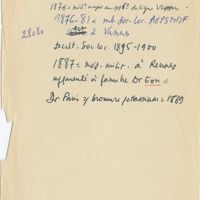 187 = méd. major au 116e de ligne Vannes
1876-81 = mb. Soc. loc. AGPSMDF
28080 à Vannes
Secrét. Soc. loc. 1895-1900
1887 = méd. milit. à Rennes
apparenté à famille Dr Eon
Dr Paris y bromure potassium = 1869